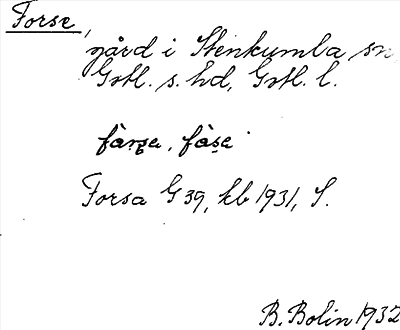 Forse,
gård i Stenkumla sn
Gotl. s. hd, Gotl. l.
fàrse, fàse
Forsa G 39, kb 1931, S.
B. Bolin 1932